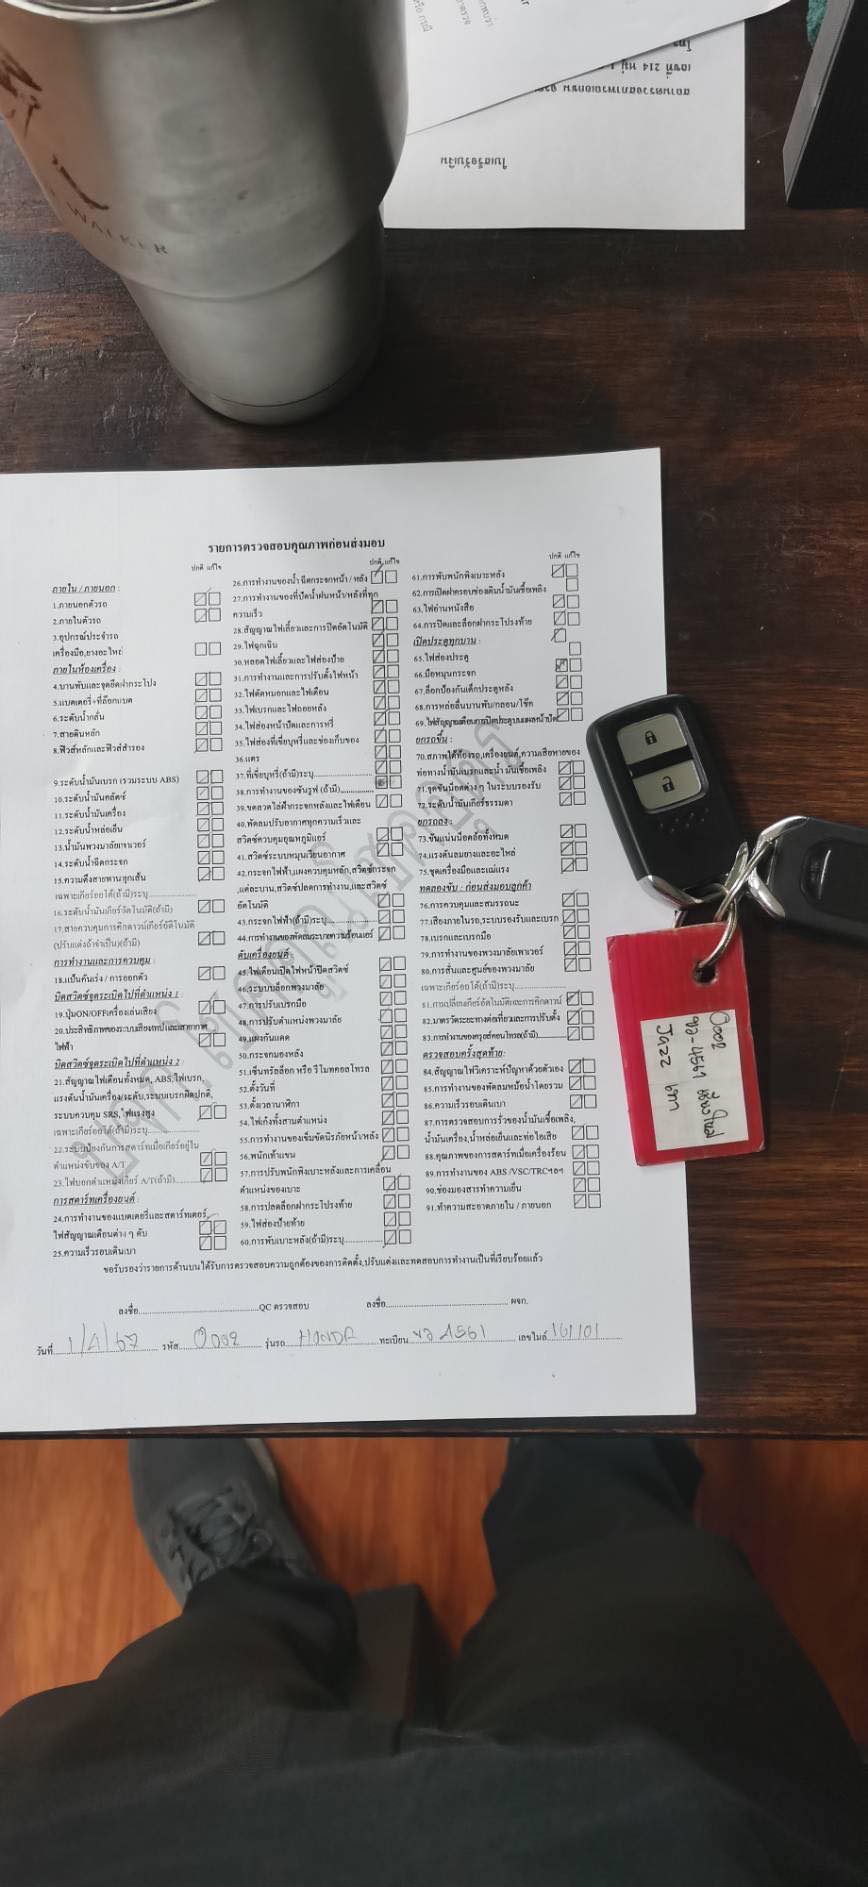 WALKER
ใบเสร็จรับเงิน
เลขที่ 214 หมู่
รายการตรวจสอบคุณภาพก่อนส่งมอบ
ปกติ แก้ไข
ภายใน / ภายนอก :
1.ภายนอกตัวรถ
2.ภายในตัวรถ
3.อุปกรณ์ประจำรถ
เครื่องมือ,ยางอะไหล่
ภายในห้องเครื่อง :
4.บานพับและจุดยึดฝากระโปรง
5.แบตเตอรี่+ที่ล๊อกแบต
6.ระดับน้ำกลั่น
7.สายดินหลัก
8.ฟิวส์หลักและฟิวส์สำรอง
9.ระดับน้ำมันเบรก (รวมระบบ ABS)
10.ระดับน้ำมันคลัตช์
11.ระดับน้ำมันเครื่อง
12.ระดับน้ำหล่อเย็น
13.น้ำมันพวงมาลัยเพาเวอร์
14.ระดับน้ำฉีดกระจก
15.ความตึงสายพานทุกเส้น
เฉพาะเกียร์ออโต้(ถ้ามี)ระบุ
16.ระดับน้ำมันเกียร์อัตโนมัติ(ถ้ามี)
17.สายควบคุมการคิกดาวน์เกียร์อัติโนมัติ
(ปรับแต่งถ้าจำเป็น)(ถ้ามี)
การทำงานและการควบคุม :
18.แป้นคันเร่ง / การออกตัว
บิดสวิตช์จุดระเบิดไปที่ตำแหน่ง 1 :
19.ปุ่มON/OFFเครื่องเล่นเสียง
20.ประสิทธิภาพของระบบเสียงเทปและเสาอากาศ
ไฟฟ้า
บิดสวิตช์จุดระเบิดไปที่ตำแหน่ง 2 :
21.สัญญาณไฟเตือนทั้งหมด, ABS,ไฟเบรก,
แรงดันน้ำมันเครื่อง/ระดับ,ระบบเบรกผิดปกติ,
ระบบควบคุม SRS, ไฟแรงสูง
เฉพาะเกียร์ออโต้(ถ้ามี)ระบุ
22.ระบบป้องกันการสตาร์ทเมื่อเกียร์อยู่ใน
ตำแหน่งขับของ A/T
23.ไฟบอกตำแหน่งเกียร์ A/T(ถ้ามี)
การสตาร์ทเครื่องยนต์ :
24.การทำงานของแบตเตอรี่และสตาร์ทเตอร์,
ไฟสัญญาณเตือนต่าง ๆ ดับ
25.ความเร็วรอบเดินเบา
ปกติ แก้ไข
26.การทำงานของน้ำ ฉีดกระจกหน้า / หลัง
27.การทำงานของที่ปัดน้ำฝนหน้า/หลังที่ทุก
ความเร็ว
28.สัญญาณไฟเลี้ยวและการปิดอัตโนมัติ
29.ไฟฉุกเฉิน
30.หลอดไฟเลี้ยวและไฟส่องป้าย
31.การทำงานและการปรับตั้งไฟหน้า
32.ไฟตัดหมอกและไฟเตือน
33.ไฟเบรกและไฟถอยหลัง
34.ไฟส่องหน้าปัดและการหรี่
35.ไฟส่องที่เขี่ยบุหรี่และช่องเก็บของ
36.แตร
37.ที่เขี่ยบุหรี่(ถ้ามี)ระบุ
38.การทำงานของซันรูฟ (ถ้ามี)
39.ขดลวดไล่ฝ้ากระจกหลังและไฟเตือน
40.พัดลมปรับอากาศทุกความเร็วและ
สวิตช์ควบคุมอุณหภูมิแอร์
41.สวิตช์ระบบหมุนเวียนอากาศ
42.กระจกไฟฟ้า,แผงควบคุมหลัก,สวิตช์กระจก
,แต่ละบาน,สวิตช์ปลดการทำงาน,และสวิตช์
อัตโนมัติ
43.กระจกไฟฟ้า(ถ้ามี)ระบุ
44.การทำงานของพัดลมระบายความร้อนแอร์
ดับเครื่องยนต์ :
45.ไฟเตือนเปิดไฟหน้าปิดสวิตช์
46.ระบบล๊อกพวงมาลัย
47.การปรับเบรกมือ
48.การปรับตำแหน่งพวงมาลัย
49.แผงกันแดด
50.กระจกมองหลัง
51.เซ็นทรัลล็อก หรือ รีโมทคอลโทรล
52.ตั้งวันที่
53.ตั้งเวลานาฬิกา
54.ไฟเก๋งทั้งสามตำแหน่ง
55.การทำงานของเข็มขัดนิรภัยหน้า/หลัง
56.พนักเท้าแขน
57.การปรับพนักพิงเบาะหลังและการเคลื่อน
ตำแหน่งของเบาะ
58.การปลดล็อกฝากระโปรงท้าย
59.ไฟส่องป้ายท้าย
60.การพับเบาะหลัง(ถ้ามี)ระบุ
ปกติ แก้ไข
61.การพับพนักพิงเบาะหลัง
62.การเปิดฝาครอบช่องเติมน้ำมันเชื้อเพลิง
63.ไฟอ่านหนังสือ
64.การปิดและล็อกฝากระโปรงท้าย
เปิดประตูทุกบาน :
65.ไฟส่องประตู
66.มือหมุนกระจก
67.ล็อกป้องกันเด็กประตูหลัง
68.การหล่อลื่นบานพับ/กลอน/โช๊ค
69.ไฟสัญญาณเตือนการเปิดประตูบนแผงหน้าปัด
ยกรถขึ้น :
70.สภาพใต้ท้องรถ,เครื่องยนต์,ความเสียหายของ
ท่อทางน้ำมันเบรกและน้ำมันเชื้อเพลิง
71.จุดขันน๊อตต่าง ๆ ในระบบรองรับ
72.ระดับน้ำมันเกียร์ธรรมดา
ยกรถลง :
73.ขันแน่นน็อตล้อทั้งหมด
74.แรงดันลมยางและอะไหล่
75.ชุดเครื่องมือและแม่แรง
ทดลองขับ : ก่อนส่งมอบลูกค้า
76.การควบคุมและสมรรถนะ
77.เสียงภายในรถ,ระบบรองรับและเบรก
78.เบรกและเบรกมือ
79.การทำงานของพวงมาลัยเพาเวอร์
80.การสั่นและศูนย์ของพวงมาลัย
เฉพาะเกียร์ออโต้(ถ้ามี)ระบุ
81.การเปลี่ยนเกียร์อัตโนมัติและการคิกดาวน์
82.มาตรวัดระยะทางต่อเที่ยวและการปรับตั้ง
83.การทำงานของครุยส์คอนโทรล(ถ้ามี)
ตรวจสอบครั้งสุดท้าย:
84.สัญญาณไฟวิเคราะห์ปัญหาด้วยตัวเอง
85.การทำงานของพัดลมหม้อน้ำโดยรวม
86.ความเร็วรอบเดินเบา
87.การตรวจสอบการรั่วของน้ำมันเชื้อเพลิง,
น้ำมันเครื่อง,น้ำหล่อเย็นและท่อไอเสีย
88.คุณภาพของการสตาร์ทเมื่อเครื่องร้อน
89.การทำงานของ ABS /VSC/TRCฯลฯ
90.ช่องมองสารทำความเย็น
91.ทำความสะอาดภายใน / ภายนอก
ขอรับรองว่ารายการด้านบนได้รับการตรวจสอบความถูกต้องของการติดตั้ง,ปรับแต่งและทดสอบการทำงานเป็นที่เรียบร้อยแล้ว
ลงชื่อ QC ตรวจสอบ ลงชื่อ ผจก.
วันที่ 1/4/67 รหัส 0002 รุ่นรถ HONDA ทะเบียน ขอ 4561 เลขไมล์ 161101
Jazz เทา